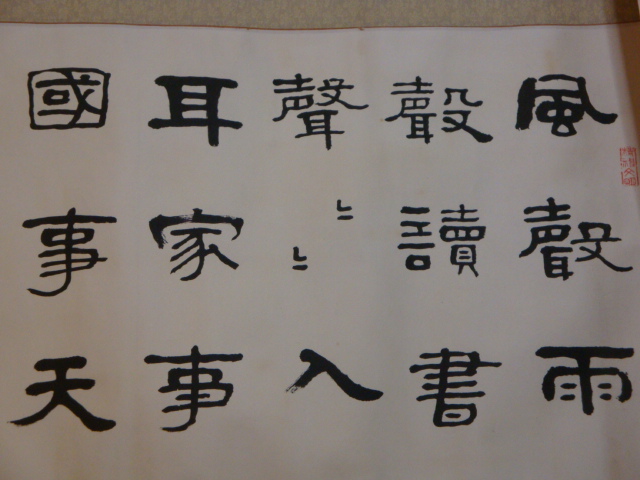 風聲雨
聲讀書
聲〻〻入
耳家事
國事天